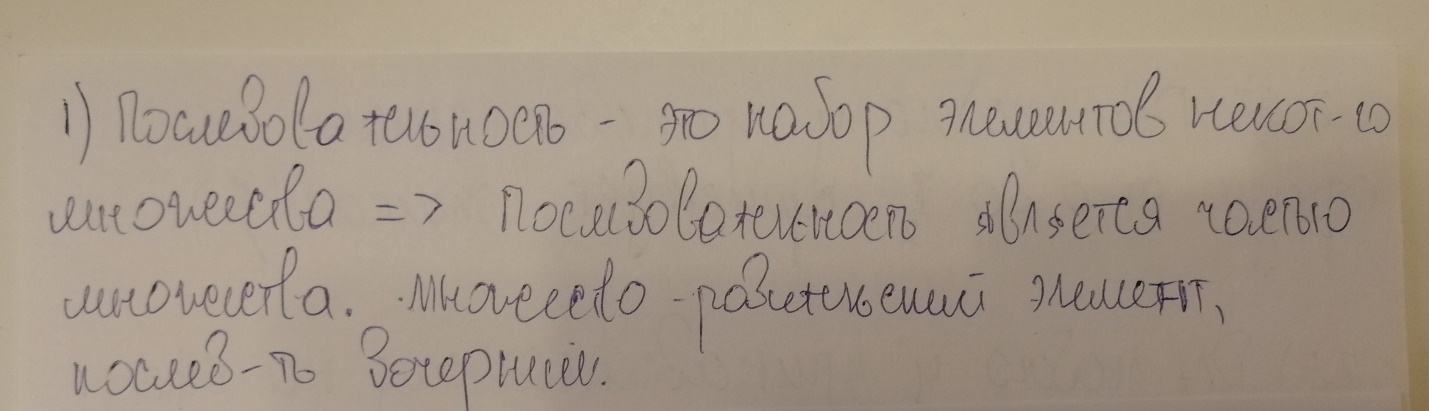 1) Последовательность - это набор элементов некот-го
множества => Последовательность является частью
множества. Множество - родительский элемент,
послед-ть дочерний.